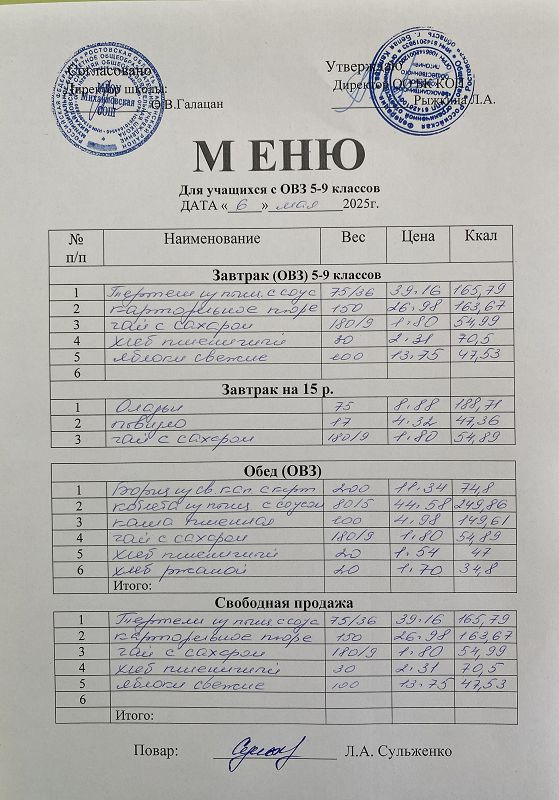 Согласовано
Директор школы:
С.В.Галацан
Утверждаю
Директор ООО
Рыжкина Л.А.
М ЕНЮ
Для учащихся с ОВЗ 5-9 классов
ДАТА «6» мая 2025г.
№ п/п Наименование Вес Цена Ккал
Завтрак (ОВЗ) 5-9 классов
1 Тефтели из птиц. с соус 75/36 39.16 165,79
2 картофельное пюре 150 26.98 163,67
3 чай с сахаром 180/9 1.80 54,99
4 хлеб пшеничный 30 2.31 70,5
5 яблоки свежие 100 13.75 47,53
6
Завтрак на 15 р.
1 Оладьи 75 8.88 188,71
2 повидло 17 4.32 47,36
3 чай с сахаром 180/9 1.80 54,89
Обед (ОВЗ)
1 Борщ из св. кап. с карт. 200 11.34 74,8
2 котлета из птиц с соусом 80/5 44.58 249,86
3 каша пшенная 100 4.98 149,61
4 чай с сахаром 180/9 1.80 54,89
5 хлеб пшеничный 20 1.54 47
6 хлеб ржаной 20 1.70 34,8
Итого:
Свободная продажа
1 Тефтели из птиц с соус 75/36 39.16 165,79
2 картофельное пюре 150 26.98 163,67
3 чай с сахаром 180/9 1.80 54,99
4 хлеб пшеничный 30 2.31 70,5
5 яблоки свежие 100 13.75 47,53
6
Итого:
Повар: Л.А. Сульженко